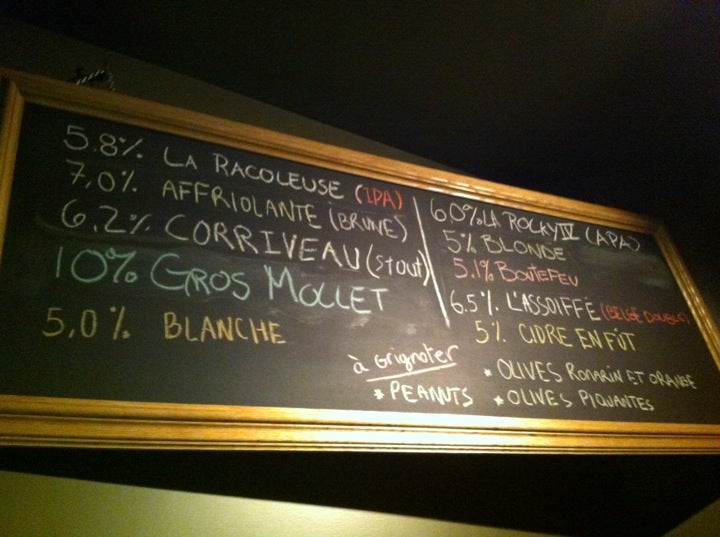 5.8% LA RACOLEUSE (IPA)
7,0% AFFRIOLANTE (BRUNE)
6,2% CORRIVEAU (STOUT)
10% GROS MOLLET
5,0% BLANCHE
6.0% LA ROCKY IV (APA)
5% BLONDE
5.1% BOUTEFEU
6.5% L'ASSOIFFÉ (BELGE DOUBLE)
5% CIDRE EN FÛT
à GRIGNOTER
* PEANUTS
* OLIVES ROMARIN ET ORANGE
* OLIVES PIQUANTES